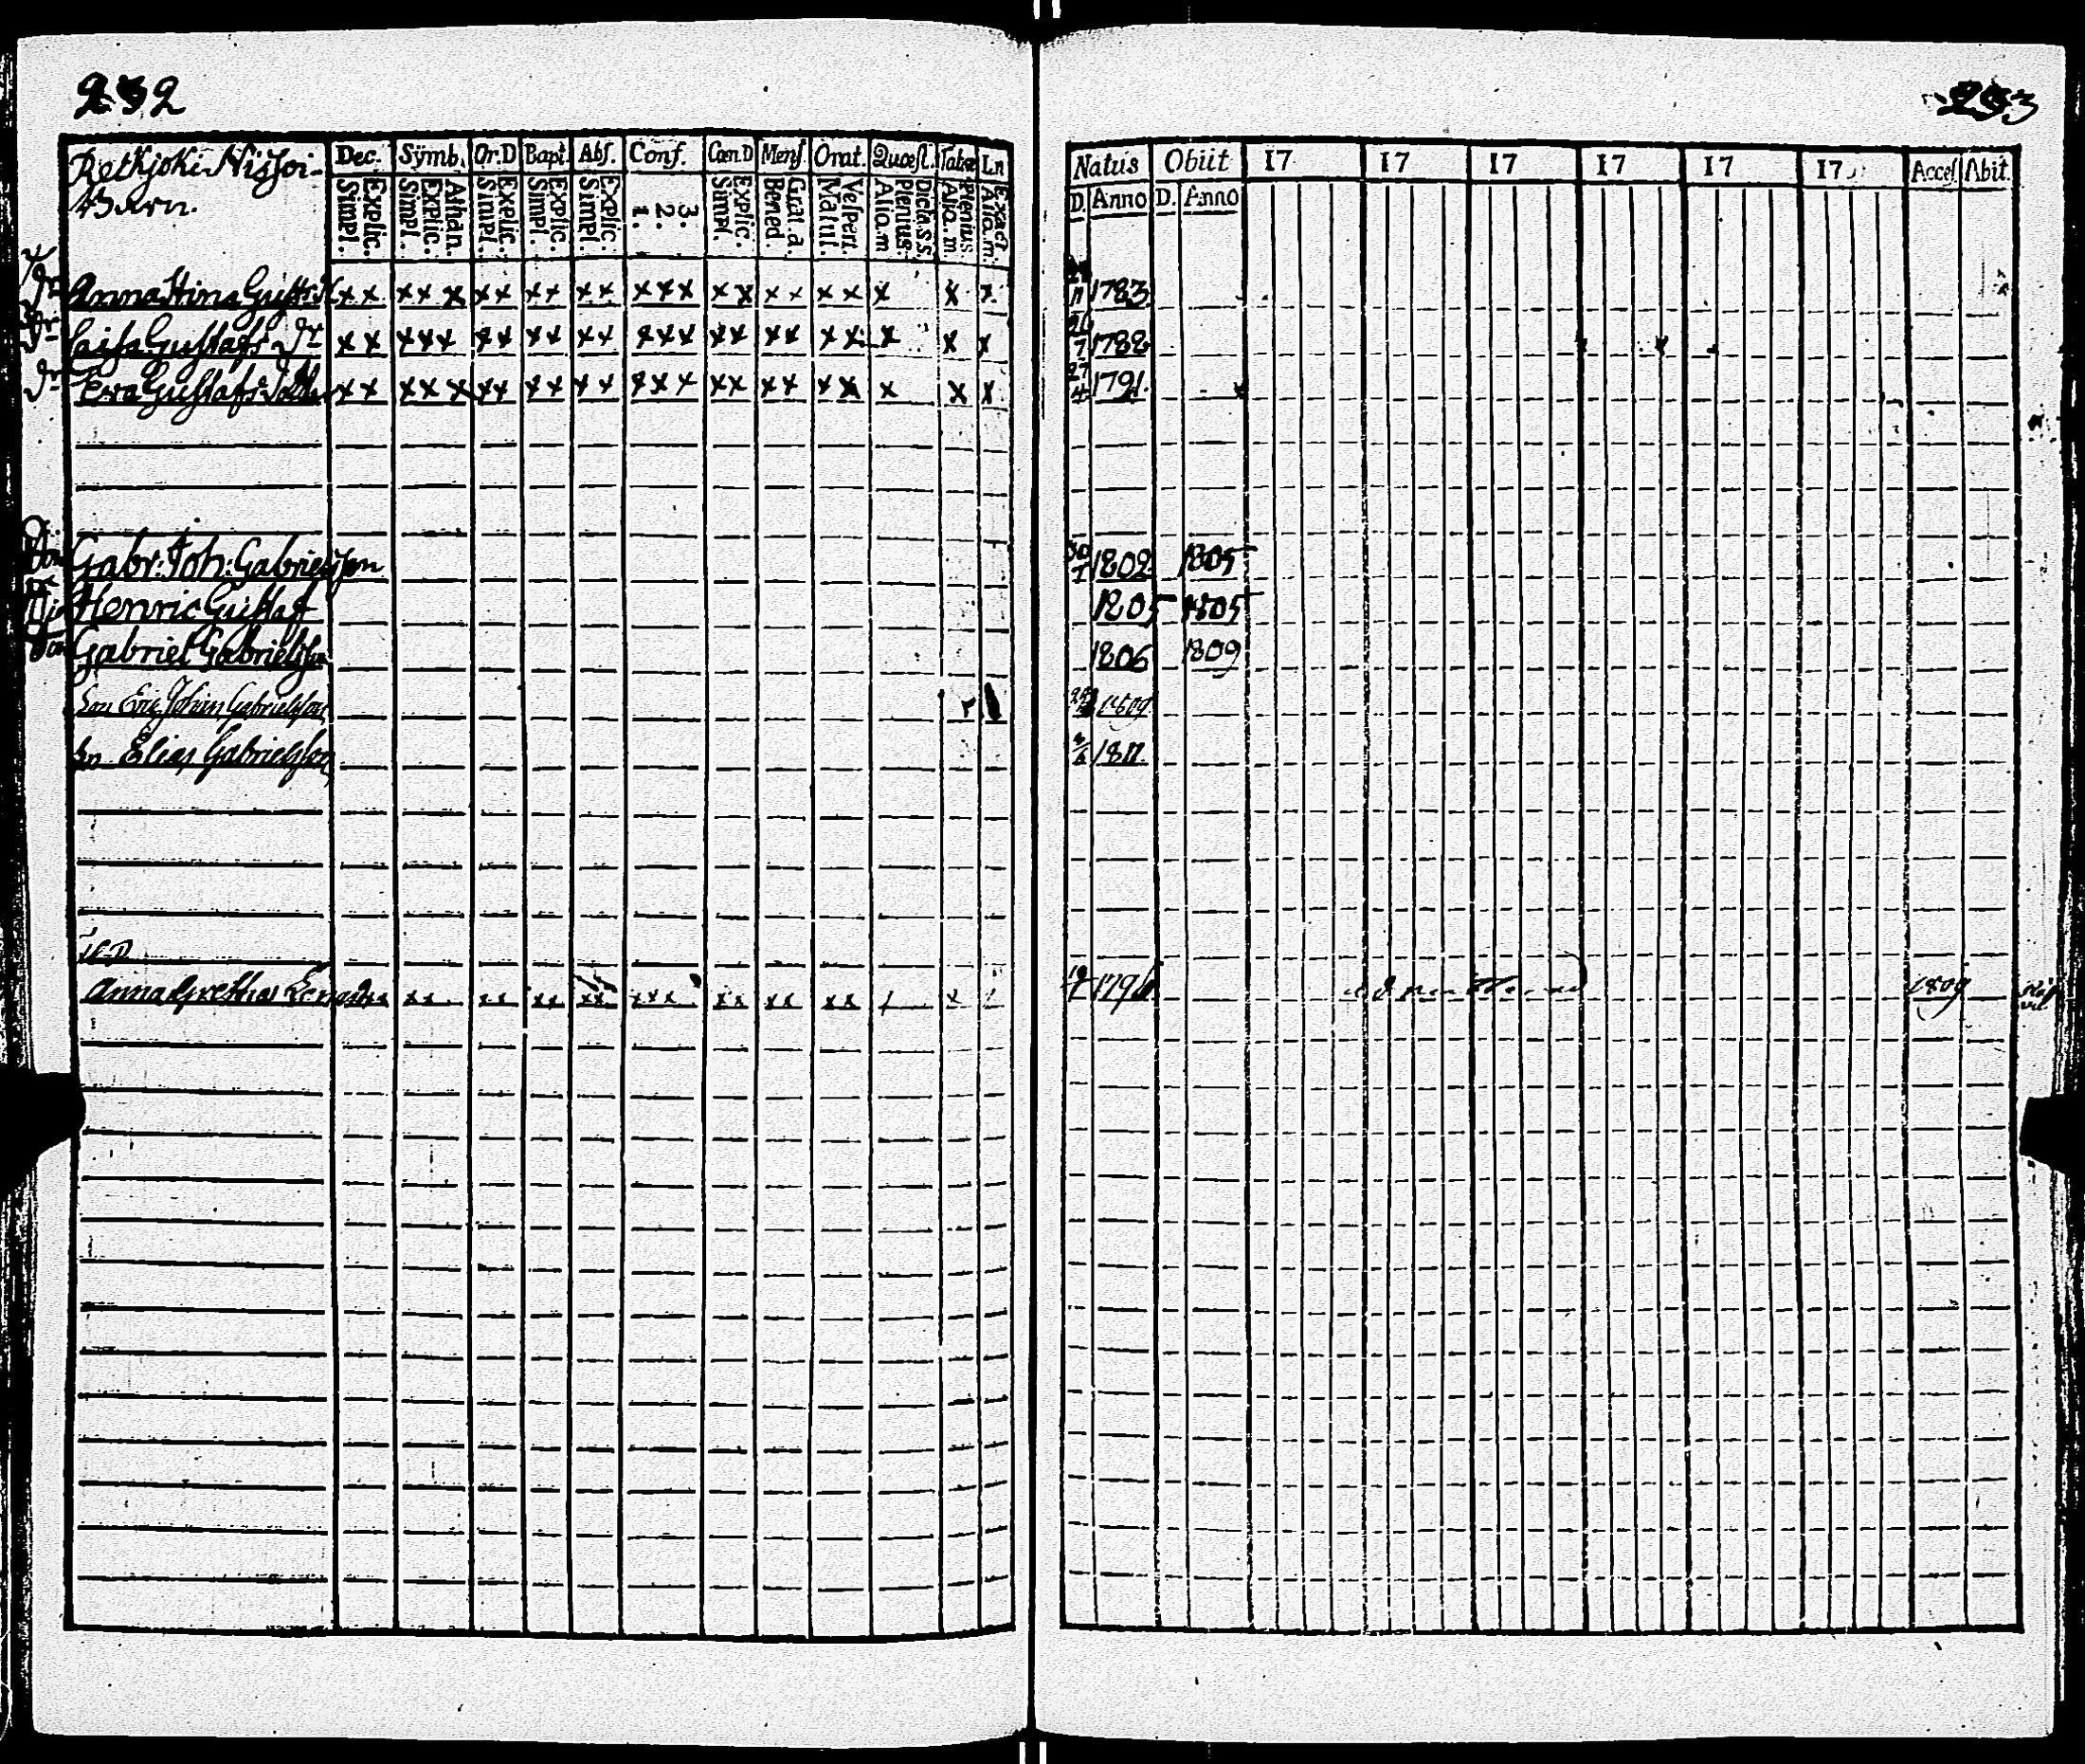 232
233
Retkjoki Nissoi
Barn.
Dec. Symb. Or.D Bapt. Abs. Conf. Cœn.D Mens. Orat. Quæst. Tabæ Ln
Simpl. Explic. Simpl. Explic. Athan. Simpl. Explic. Simpl. Explic. Simpl. Explic. 1. 2. 3. Simpl. Explic. Bened. Grat. a. Matut. Vespert. Alio.m Plenius Dicta.s.s. Alio.m Plenius Alio.m. Exact
Natus Obiit 17 17 17 17 17 17 Acces. Abit.
D. Anno D. Anno
Dr Anna Stina Gust. x x x x x x x x x x x x x x x x x x x x x x x 11 1783
Dr Caisa Gustafs Dr x x x x x x x x x x x x x x x x x x x x x x x 7 1788
Dr Eva Gustafs x x x x x x x x x x x x x x x x x x x x x x x 27 4 1791.
Son Gabr: Joh: Gabrielsson 30 1 1802 1805
Henric Gustaf 1805 1805
Son Gabriel Gabrielsson 1806 1809
Son Eric Johan Gabrielsson 1809.
Sn Elias Gabrielsson 1811.
Anna Gretha x x x x x x x x x x x x x x x x x x 1796 1809